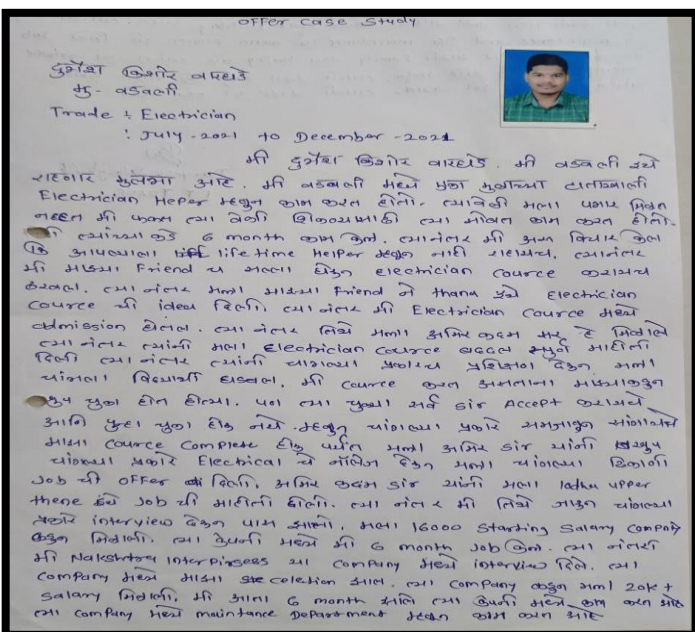 offer case study
दुर्गेश किशोर वारघडे
मु- वडवली
Trade : Electrician
: July -2021 to December -2021
मी दुर्गेश किशोर वारघडे. मी वडवली इथे
राहणार मुलगा आहे. मी वडवली मध्ये एका मुलाच्या हाताखाली
Electrician Heper म्हणून काम करत होतो. त्यावेळी मला पगार मिळत
नव्हता मी फक्त त्या वेळी शिकण्यासाठी त्या सोबत काम करत होतो.
मी त्यांच्या कडे 6 month काम केले. त्यानंतर मी असा विचार केला
कि आपल्याला life time Helper म्हणून नाही राहायच. त्यानंतर
मी माझ्या Friend च सल्ला घेऊन electrician cource करायच
ठरवल. त्या नंतर मला माझ्या Friend ने thana इथे Electrician
cource ची idea दिली. त्या नंतर मी Electrician cource मध्ये
admission घेतल. त्या नंतर तिथे मला अमिर कदम सर हे मिळाले
त्या नंतर त्यांनी मला Electrician cource बद्दल संपूर्ण माहीती
दिली त्या नंतर त्यांनी चांगल्या प्रकारच प्रशिक्षण देऊन मला
चांगला विद्यार्थी घडवल. मी cource करत असताना माझ्याकडून
खुप चुका होत होत्या. पण त्या चुका सर्व sir Accept करायचे
आणि पुन्हा चुका होऊ नये म्हणून चांगल्या प्रकारे समजावून सांगायचे
माझा cource complete होऊ पर्यंत मला अमिर sir यांनी खुप
चांगल्या प्रकारे Electrical चे नॉलेज देऊन मला चांगल्या ठिकाणी
Job ची offer दिली. अमिर कदम sir यांनी मला lodha upper
thene इथे Job ची माहीती दिली. त्या नंतर मी तिथे जाऊन चांगल्या
प्रकारे interview देऊन पास झालो. मला 16000 starting salary company
कडून मिळाली. त्या कंपनी मध्ये मी 6 month Job केल. त्या नंतर
मी Nakshtra Interpirsess या company मध्ये interview दिले. त्या
company मध्ये माझा celection झाल. त्या company कडून मला 20k +
salary मिळाली. मी आता 6 month झाले त्या कंपनी मध्ये काम करत आहे
त्या company मध्ये maintance Department म्हणून काम करत आहे